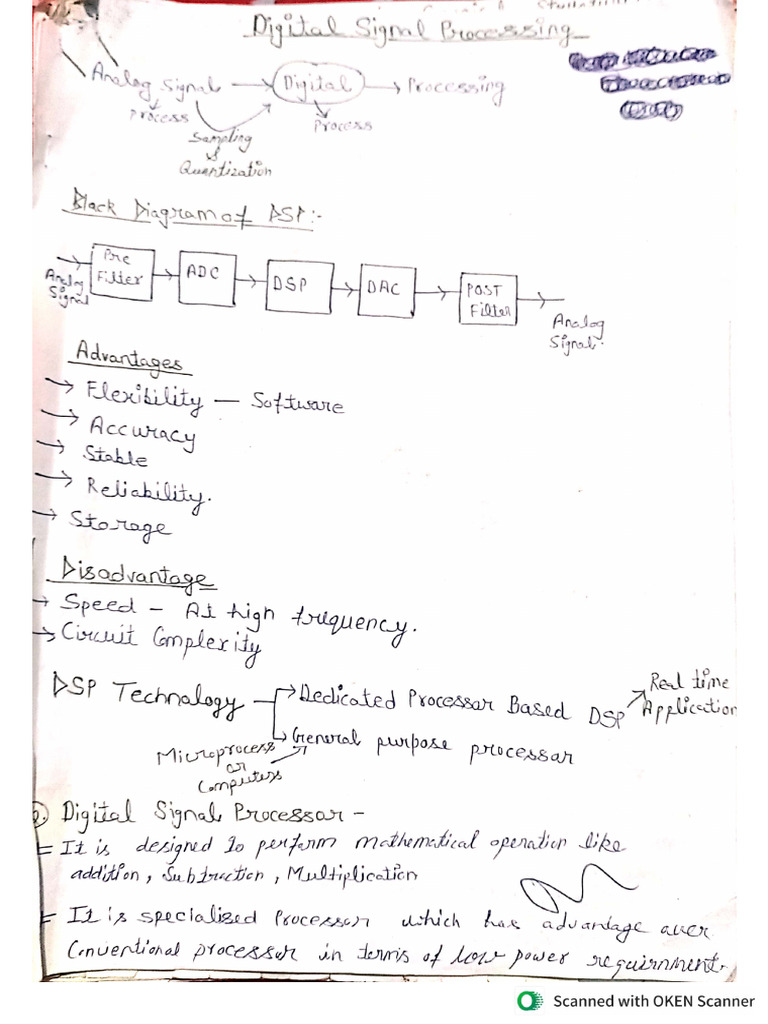 Digital Signal Processing
Analog Signal → Digital → Processing
Process
Process
Sampling
&
Quantization
Block Diagram of DSP:-
Pre Filter
ADC
DSP
DAC
POST Filter
Analog Signal
Analog Signal.
Advantages
→ Flexibility — Software
→ Accuracy
→ Stable
→ Reliability.
→ Storage
Disadvantage
→ Speed – At high frequency.
→ Circuit Complexity
DSP Technology
→ Dedicated Processor Based DSP
Real time Application
→ General purpose processor
Microprocess
or
Computers
Digital Signal Processor –
= It is designed to perform mathematical operation like
addition, Subtraction, Multiplication
= It is specialised Processor which has advantage over
Conventional processor in terms of low power requirnment.
Scanned with OKEN Scanner